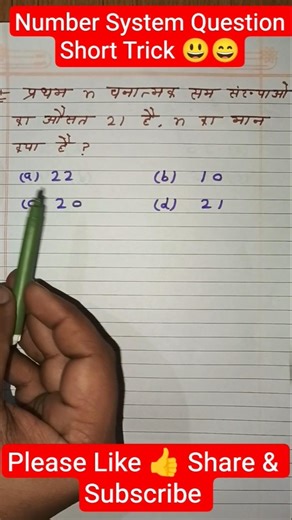 Number System Question
Short Trick 😃😄
प्रथम n धनात्मक सम संख्याओ
का औसत 21 है, n का मान
क्या है ?
(a) 22 (b) 10
(c) 20 (d) 21
Please Like 👍 Share &
Subscribe